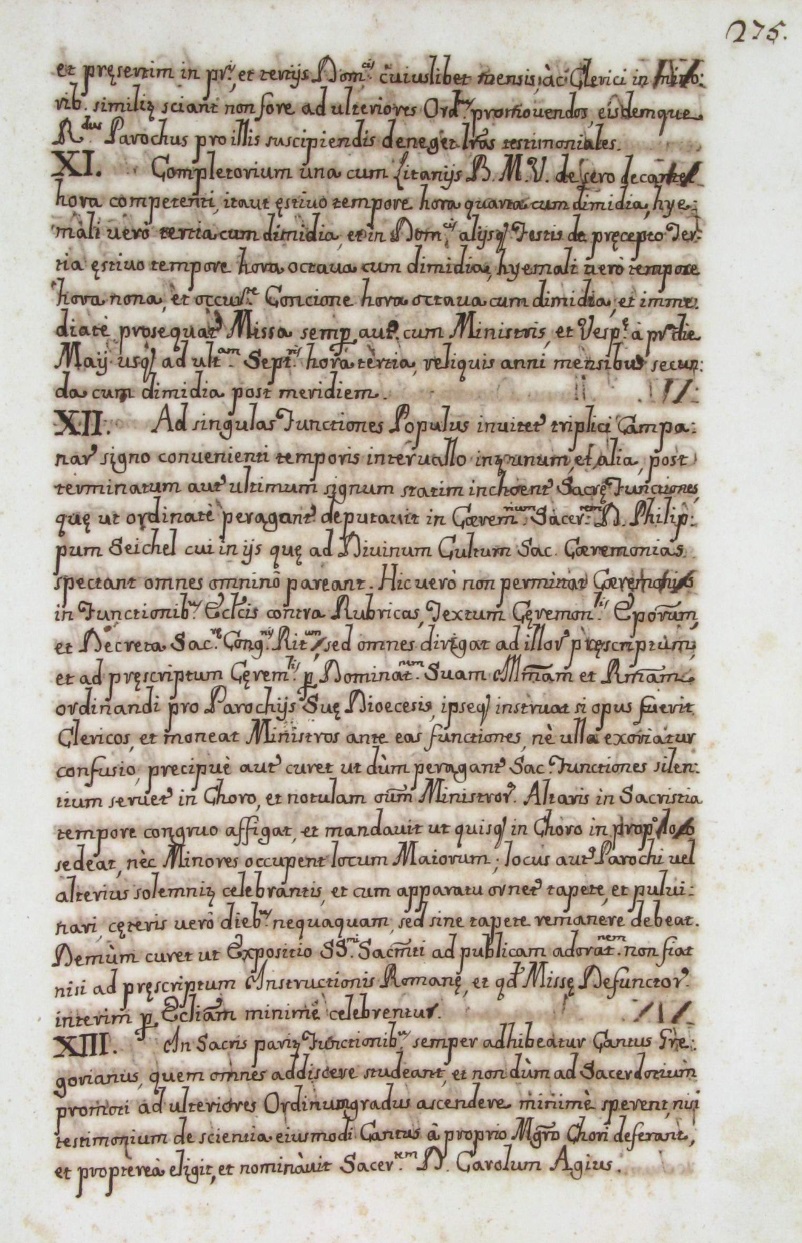 275.
et pręsertim in prĩs, et tertijs Domcis cuiuslibet mensis, àc Clerici in mino:
rib9 similiq sciant non fore ad ulteriores Ordes promouendos, eisdemque
Rdus Parochus pro illis suscipiendis deneget lras testimoniales.
XI. Completorium una cum Litanijs B. M. V. de sero decantet
hora competenti, itaut ęstiuo tempore hora quarta cum dimidia, hye:
mali uerò tertia cum dimidia, et in Domcis, alijsq Festis de pręcepto Ter:
tia ęstiuo tempore hora octaua cum dimidia, hyemali uerò tempore
hora nona, èt occurte Concione hora octaua cum dimidia, et imme:
diatè prosequatr Missa semp aut cum Ministris, et Vespe à pra die
Maij usq ad ultam Septris hora tèrtia, reliquis anni mensibus secun:
da cum dimidia post meridiem.
XII. Ad singulas Functiones Populus inuitetr triplici Campa:
nar signo conuenienti temporis interuallo inter unum, et alia, post
terminatum aut ultimum signum statim inchoentr Sacrę Functiones,
quę ut ordinatè peragantr deputauit in Cœremrium Sacertem D. Philip:
pum Seichel cui in ijs quę ad Diuinum Cultum Sac. Cœremonias
spectant omnes omninò pareant. Hic uerò non permittat Cœremonias
in Functionib9 Ecłcis contra Rubricas, Textum Cęremonlis Eporum,
et Decreta Sacre Congnis Rituum, sed omnes dirigat ad illor pręscriptum,
et ad pręscriptum Cęremlis p Dominatnem Suam Illmam et Rmam
ordinandi pro Parochijs Suę Dioecesis, ipseq instruat si opus fuerit
Clericos, et moneat Ministros ante eas functiones, nè ulla exoriatur
confusio, precipuè aut curet ut dùm peragantr Sac. Functiones silen:
tium seruetr in Choro, et notulam oium Ministror Altaris in Sacristia
tempore congruo affigat, et mandauit ut quisq in Choro in propo loco
sedeat, nèc Minores occupent locum Maiorum; locus aut Parochi uel
alterius solemniq celebrantis, et cum apparatu ornetr tapete, et pului:
nari, cęteris uerò dieb9 nequaquam, sed sine tapete remanere debeat.
Demùm curet ut Expositio SSmi Sacmti ad publicam adoratnem non fiat
nisi ad pręscriptum Instructionis Romanę, et qd Missę Defunctor
interim p Eccliam minimè celebrentur.
XIII. In Sacris pariq Functionib9 semper adhibeatur Cantus Gre:
gorianus, quem omnes addiscere studeant, et non dùm ad Sacerdotium
promoti ad ulteriores Ordinum gradus ascendere minimè sperent, nisi
testimonium de scientia eiusmodi Cantus à proprio Mgro Chori deferant,
et proptereà eligit, et nominàuit Sacertem D. Carolum Agius.